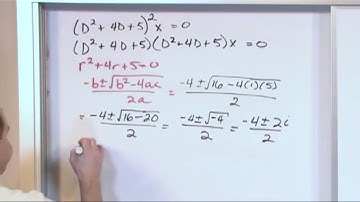 (D² + 4D + 5)² x = 0
(D² + 4D + 5)(D² + 4D + 5)x = 0
r² + 4r + 5 = 0
(-b ± √(b² - 4ac))/2a = (-4 ± √(16 - 4(1)(5)))/2
= (-4 ± √(16 - 20))/2 = (-4 ± √-4)/2 = (-4 ± 2i)/2